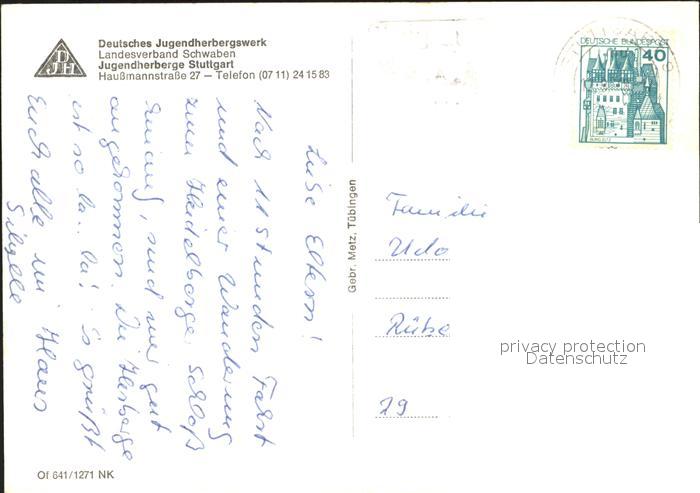 Deutsches Jugendherbergswerk
Landesverband Schwaben
Jugendherberge Stuttgart
Haußmannstraße 27 — Telefon (07 11) 24 15 83
DJH
DEUTSCHE BUNDESPOST
40
Liebe Eltern!
Nach 11 Stunden Fahrt
und einer Wanderung
zum Heidelberger Schloß
sind wir gut
angekommen. Die Herberge
ist so la.. la! Es grüßt
Euch alle
Sibylle
Gebr. Metz, Tübingen
Familie
Udo
Rübe
29
privacy protection
Datenschutz
Of 641/1271 NK